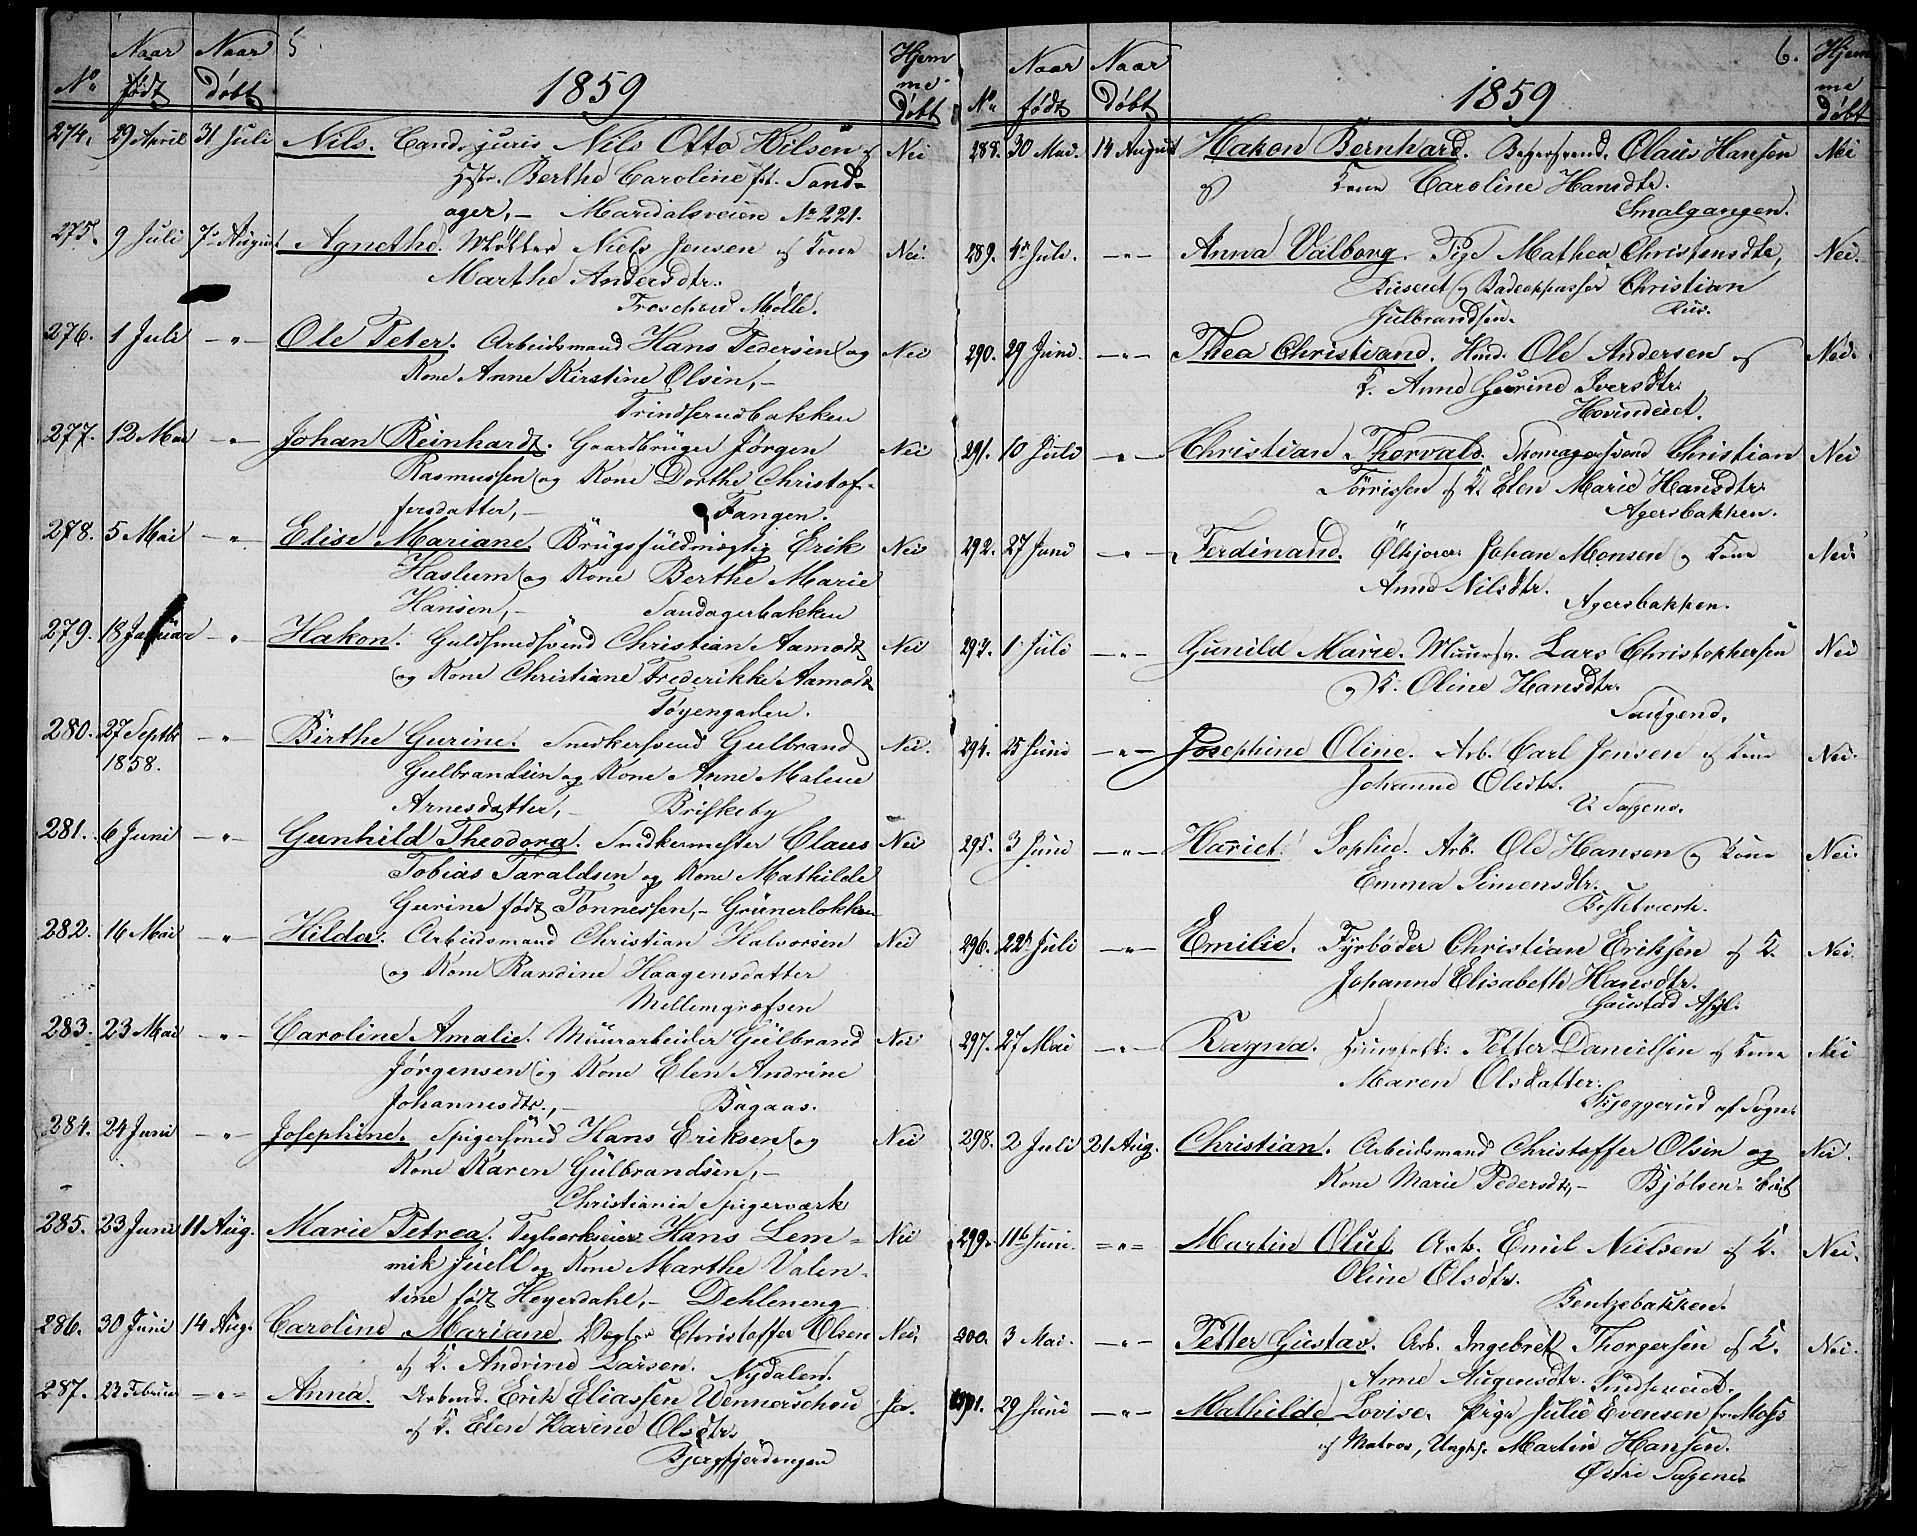 5
No Naar født Naar døbt 1859 Hjem me døbt
274. 29 April 31 Juli Nils. Cand. juris Nils Otto Hilsen og Nei
Hstr. Berthe Caroline fdt. Sand-
ager, - Maridalsveien No 221.
275. 9 Juli 7 August Agnethe. Møller Niels Jensen og Kone Nei.
Marthe Andersdtr.
Treschau Mølle.
276. 1 Juli -"- Ole Peter. Arbeidsmand Hans Pedersen og Nei
Kone Anne Kirstine Olsen, -
Trindserudbakken
277. 12 Mai -"- Johan Reinhardt. Gaardbruger Jørgen Nei
Rasmussen og Kone Dorthe Christof-
fersdatter, - Tangen.
278. 5 Mai -"- Elise Mariane. Brugsfuldmægtig Erik Nei
Haslum og Kone Berthe Marie
Hansen, - Sandagerbakken
279. 18 Januar " Hakon. Guldsmedsvend Christian Aamodt Nei
og Kone Christiane Frederikke Aamodt
Tøyengaden.
280. 27 Septbr -"- Birthe Gurine. Snedkersvend Gulbrand Nei.
1858. Gulbrandsen og Kone Anne Malene
Arnesdatter, - Briskeby
281. 6 Juni -"- Gunhild Theodora. Snedkermester Claus Nei
Tobias Taraldsen og Kone Mathilde
Gurine født Tønnessen, - Grünerløkken
282. 16 Mai -"- Hilda. Arbeidsmand Christian Halvorsen Nei
og Kone Randine Haagensdatter
Mellemgræfsen
283. 23 Mai -"- Caroline Amalie. Muurarbeider Gulbrand Nei
Jørgensen og Kone Elen Andrine
Johannesdtr., - Bagaas.
284. 24 Juni -"- Josephine. Spigersmed Hans Eriksen og Nei
Kone Karen Gulbrandsen, -
Christiania Spigerværk
285. 23 Juni 11 Aug. Marie Petrea. Teglværkseier Hans Lem- Nei
mik Juell og Kone Marthe Valen-
tine født Heyerdahl, - Dehleneng
286. 30 Juni 14 Aug. Caroline Mariane Vogter Christoffer Olsen Nei.
og K. Andrine Larsen. Nydalen.
287. 23 Februar -"- Anna. Arbmd. Erik Eliassen Wennerschou Ja.
og K. Elen Karine Olsdtr.
Bjergfjerdingen
6.
No Naar født Naar døbt 1859 Hjem me døbt
288. 30 Mai. 14 August Hakon Bernhard. Bagersvend. Olaus Hansen Nei
og Kone Caroline Hansdtr.
Smalgangen.
289. 4 Juli. -"- Anna Valborg. Pige Mathea Christensdtr, Nei.
Christian
Gulbrandsen.
290. 29 Juni. -"- Thea Christiane. Hmd. Ole Andersen og Nei.
K. Anne Gurine Iversdtr.
Hovindeiet.
291. 10 Juli -"- Christian Thorvald. Skomagersvend Christian Nei
Tørrissen og K. Elen Marie Hansdtr.
Agersbakken.
292. 27 Juni -"- Ferdinand. Ølkjører Johan Monsen og Kone Nei.
Anne Nilsdtr.
Agersbakken.
293. 1 Juli -"- Gunild Marie. Muursv. Lars Christophersen Nei
og K. Oline Hansdtr.
Saugene.
294. 25 Juni -"- Josephine Oline. Arb. Carl Jensen og Kone Nei.
Johanne Olsdtr.
V. Sagene.
295. 3 Juni -"- Hariet Sophie. Arb. Ole Hansen og Kone Nei.
Emma Simensdtr.
296. 22 Juli -"- Emilie. Fyrbøder Christian Eriksen og K. Nei.
Johanne Elisabeth Hansdtr.
Gaustad Asyl.
297. 27 Mai -"- Ragna. Petter Danielsen og Kone Nei
Maren Olsdatter.
Skjeggerud af Sogn.
298. 2 Juli 21 Aug. Christian. Arbeidsmand Christoffer Olsen og Nei.
Kone Marie Pedersdtr, - Bjølsen-
299. 11 Juni. -"- Martin Oluf. Arb. Emil Nielsen og K. Nei.
Oline Olsdtr.
Bentzebakken.
300. 3 Mai. -"- Petter Gustav. Arb. Ingebret Thorgersen og K. Nei.
Anne Augensdtr.
301. 29 Juni -"- Mathilde Lovise. Pige Julie Evensen fra Moss
og Matros, Ungk. Martin Hansen.
Østre Sagene